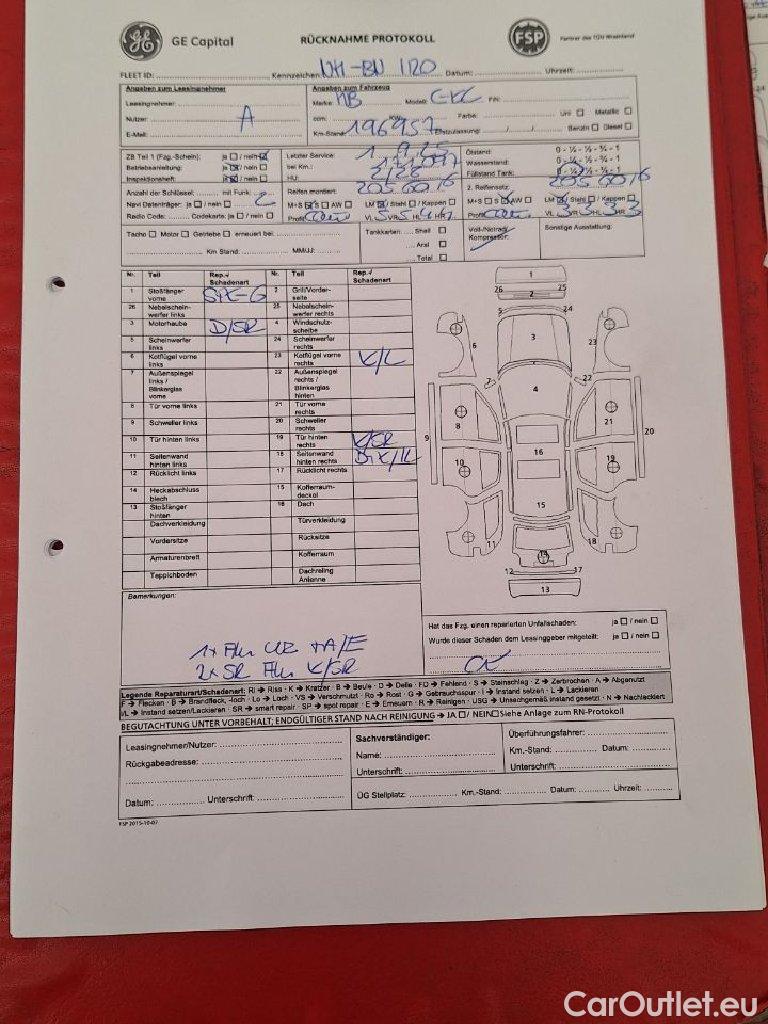 GE Capital
RÜCKNAHME PROTOKOLL
FSP
Partner des TÜV Rheinland
FLEET ID: Kennzeichen: Datum: Uhrzeit:
Angaben zum Leasingnehmer
Angaben zum Fahrzeug
Leasingnehmer:
Marke: MB Modell: FIN:
Nutzer: A
ccm: KW: Farbe: Uni □ Metallic □
E-Mail:
Km-Stand: 196957 Erstzulassung: / / Benzin □ Diesel □
ZB Teil 1 (Fzg.-Schein): ja □ / nein
Letzter Service:
Ölstand: 0 - ¼ - ½ - ¾ - 1
Betriebsanleitung: ja / nein □
bei Km.:
Wasserstand: 0 - ¼ - ½ - ¾ - 1
Inspektionsheft: ja / nein □
HU:
Füllstand Tank: 0 - ¼ - ½ - ¾ - 1
Anzahl der Schlüssel: mit Funk: 2
Reifen montiert: 205 60 16
2. Reifensatz: 205 60 16
Navi Datenträger: ja □ / nein □
M+S S □ AW □ LM / Stahl □ / Kappen □
M+S □ S AW □ LM / Stahl □ / Kappen □
Radio Code: Codekarte: ja □ / nein □
Profil VL HL HR
Profil VL 3 VR 3 HL 3 HR 3
Tacho □ Motor □ Getriebe □ erneuert bei:
Km Stand: MM/JJ:
Tankkarten: Shell □
Aral □
Total □
Voll-/Notrad/
Kompressor:
Sonstige Ausstattung:
Nr. Teil Rep./ Schadenart Nr. Teil Rep./ Schadenart
1 Stoßfänger vorne 2 Grill/Vorderseite
26 Nebelscheinwerfer links 25 Nebelscheinwerfer rechts
3 Motorhaube D/SR 4 Windschutzscheibe
5 Scheinwerfer links 24 Scheinwerfer rechts
6 Kotflügel vorne links 23 Kotflügel vorne rechts K/L
7 Außenspiegel links / Blinkerglas vorne 22 Außenspiegel rechts / Blinkerglas hinten
8 Tür vorne links 21 Tür vorne rechts
9 Schweller links 20 Schweller rechts
10 Tür hinten links 19 Tür hinten rechts K/SR
11 Seitenwand hinten links 18 Seitenwand hinten rechts
12 Rücklicht links 17 Rücklicht rechts
14 Heckabschluss blech 15 Kofferraumdeckel
13 Stoßfänger hinten 16 Dach
Dachverkleidung Türverkleidung
Vordersitze Rücksitze
Armaturenbrett Kofferraum
Teppichboden Dachreling Antenne
1
26 25
2
5 24
6 3 23
7 22
4
8 21
9 20
16
10 19
15
11 18
14
12 17
13
Bemerkungen:
2x SR K/SR
Hat das Fzg. einen reparierten Unfallschaden: ja □ / nein □
Wurde dieser Schaden dem Leasinggeber mitgeteilt: ja □ / nein □
OK
Legende Reparaturart/Schadenart: RI ➔ Riss - K ➔ Kratzer - B ➔ Beule - D ➔ Delle - FD ➔ Fehlend - S ➔ Steinschlag - Z ➔ Zerbrochen - A ➔ Abgenutzt
F ➔ Flecken - B ➔ Brandfleck, -loch - Lo ➔ Loch - VS ➔ Verschmutzt - Ro ➔ Rost - G ➔ Gebrauchsspur - I ➔ Instand setzen - L ➔ Lackieren
I/L ➔ Instand setzen/Lackieren - SR ➔ smart repair - SP ➔ spot repair - E ➔ Erneuern - R ➔ Reinigen - USG ➔ Unsachgemäß instand gesetzt - N ➔ Nachlackiert
BEGUTACHTUNG UNTER VORBEHALT; ENDGÜLTIGER STAND NACH REINIGUNG ➔ JA □/ NEIN □ Siehe Anlage zum RN-Protokoll
Leasingnehmer/Nutzer:
Sachverständiger:
Überführungsfahrer:
Rückgabeadresse:
Name:
Km.-Stand: Datum:
Unterschrift:
Unterschrift:
Datum: Unterschrift:
ÜG Stellplatz: Km.-Stand: Datum: Uhrzeit:
CarOutlet.eu